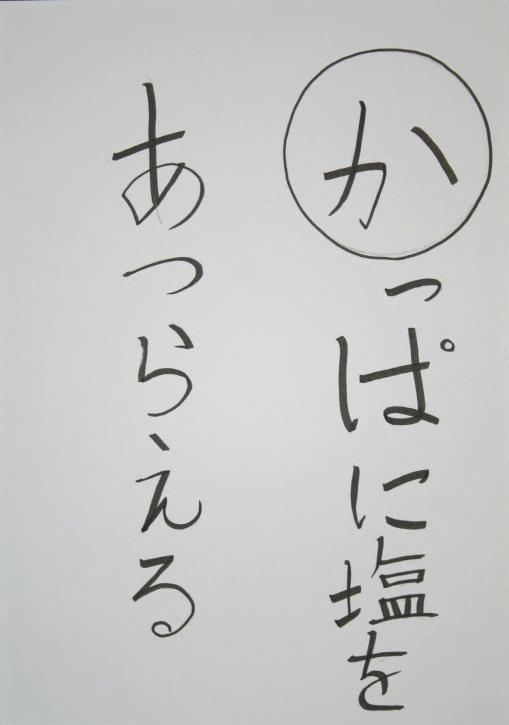 かっぱに塩を
あつらえる